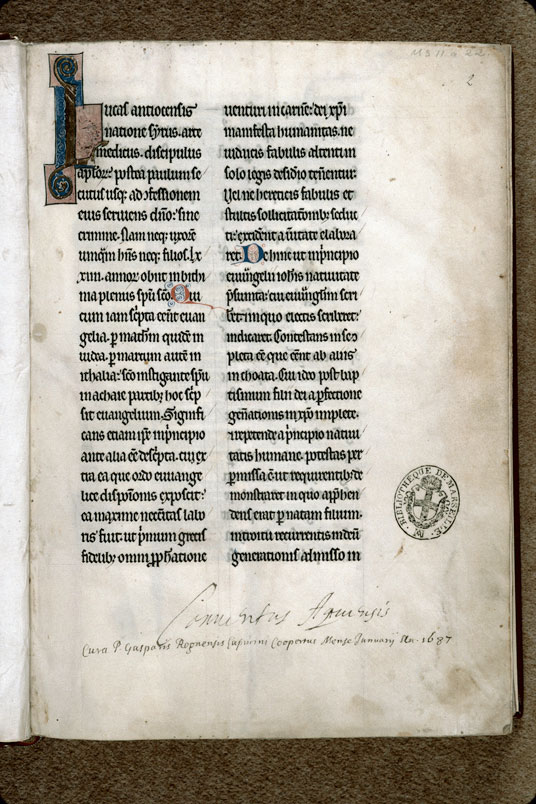 Ms 11 a 22
2
Lucas antiocensis
natione syrus. arte
medicus. discipulus
aplor. postea paulum se
cutus usq; ad cfessionem
eius seruiens dño: sine
crimine. Nam neq; uxorē
umqm hñs neq; filios. lx
xiiii. annor obiit in bithi
nia plenus spu sco. Qui
cum iam scripta eēnt euan
gelia. p matheū quidē in
iudea. p marcum autē in
ithalia: sco instigante spu
in achaie partib; hoc scrip
sit euangelium. Signifi
cans etiam ipse in principio
ante alia eē descripta. cui ex
tra ea que ordo euuange
lice disponis exposcit:
ea maxime necessitas labo
ris fuit: ut primum grecis
fidelib; omni pphatione
uenturi in carnē: dei xpi
manifesta humanitas. ne
iudaicis fabulis attenti in
solo legis desiderio tenentur:
Uel ne hereticis fabulis et
stultis sollicitationib; seduc
ti: exciderent a ueritate elabora
ret. Dehinc ut in principio
euuangelii iohis natiuitate
psumta: cui euuangelium scri
beret: in quo electus scriberet:
indicaret. Contestans in se
pleta eē que eēnt ab aliis
inchoata. Cui ideo post bap
tismum filii dei a perfectione
generationis in xpo implete.
repetende a principio natiui
tatis humane. potestas per
pmissa ē: ut requirentib; de
monstraret in quo apphen
dens erat p natam filium.
introitu recurrentis in deū
generationis admisso in
BIBLIOTHEQUE DE MARSEILLE
Conventus Aquensis
Cura P. Gasparis Rognensis Capucini Coopertus Mense Januarij An. 1687